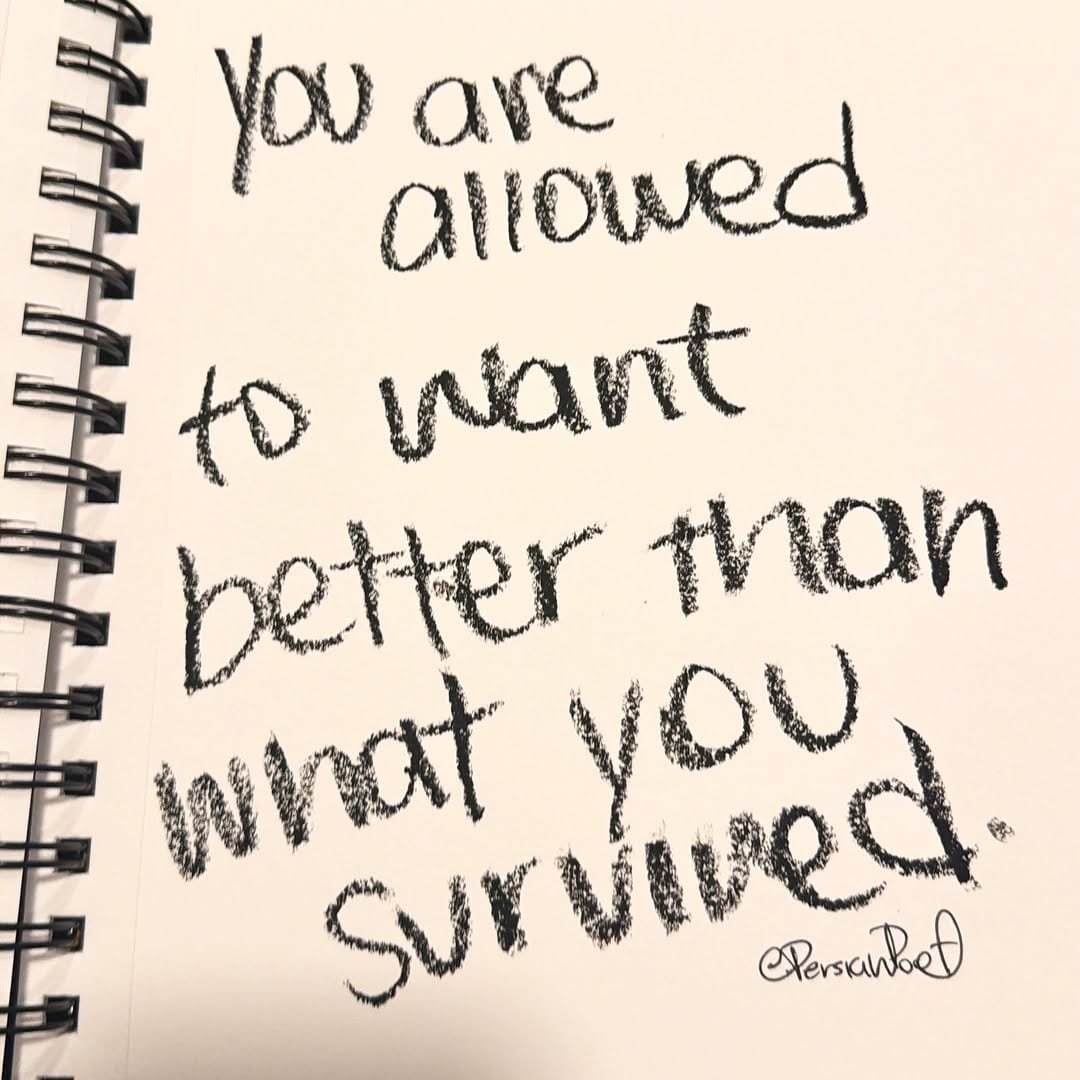 you are
allowed
to want
better than
what you
survived.
@PersianPoet